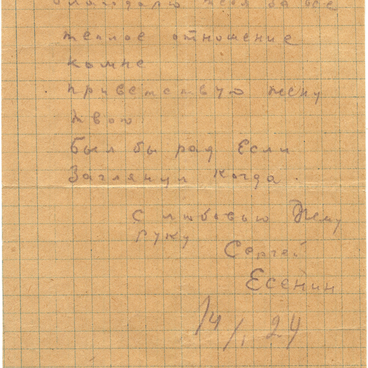 благодарю тебя за все
теплое отношение
комне
приветствую жену
твою
Был бы рад Если
Заглянул Когда.
С любовью Жму
Руку
Сергей
Есенин
14/I 24